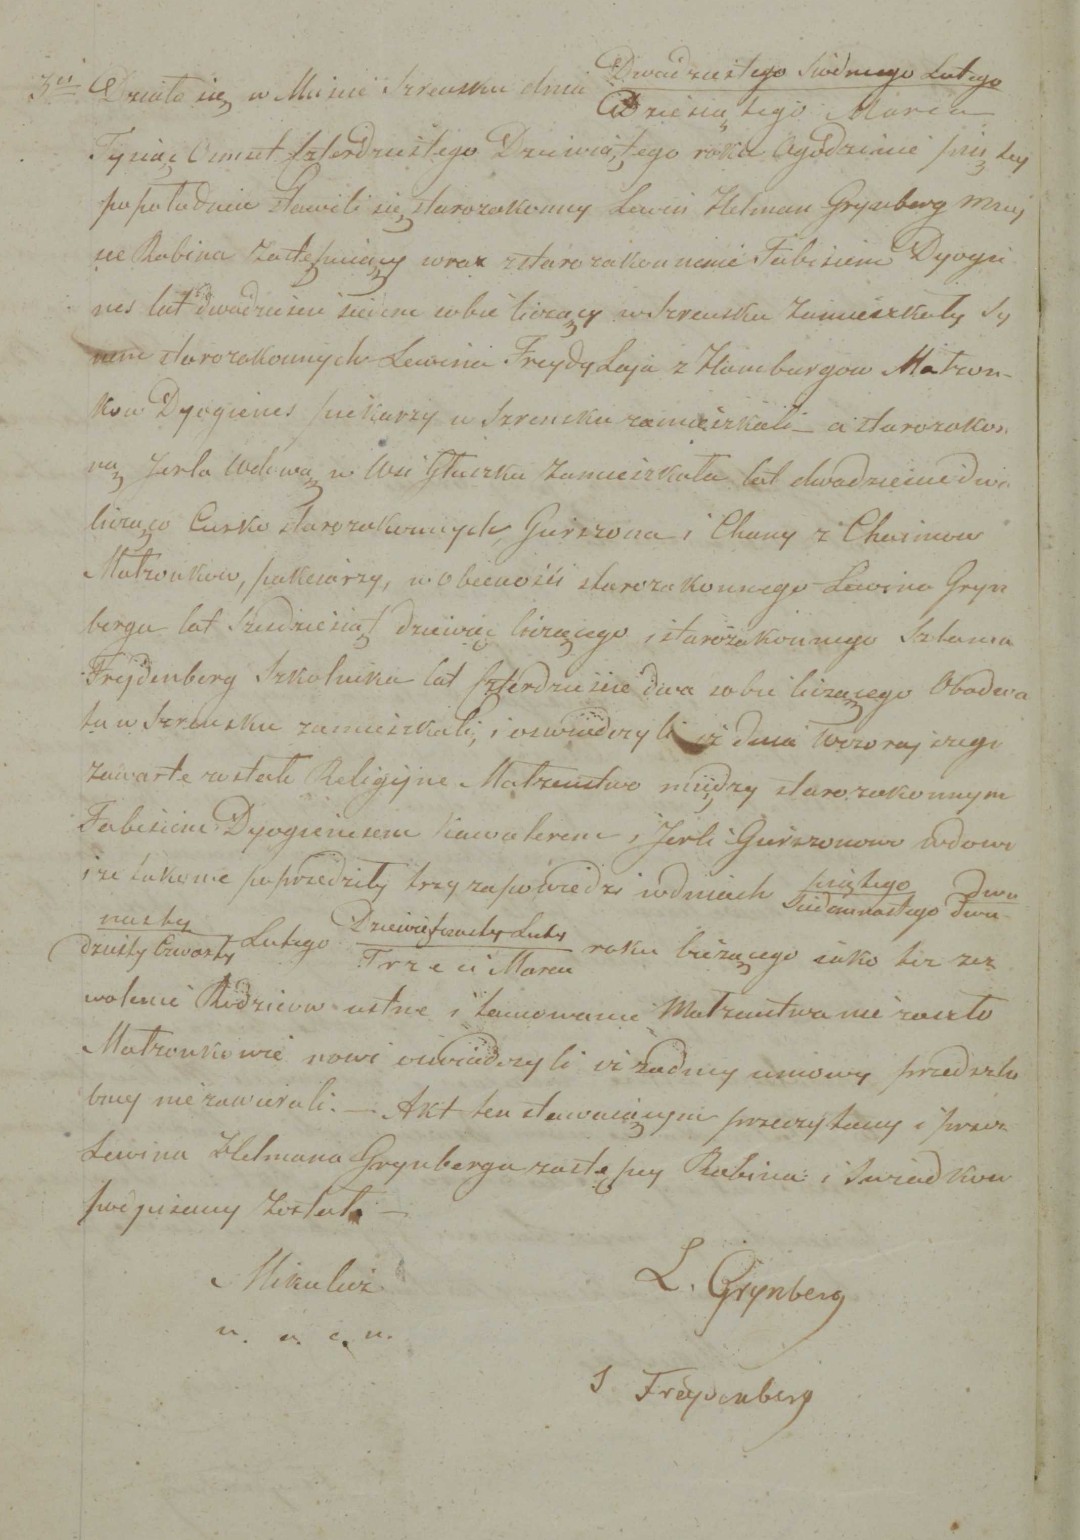 3ci Działo się w Mieście Szreńsku dnia Dwudziestego Siódmego Lutego
Dziesiątego Marca
Tysiąc Omset Czterdziestego Dziewiątego roku o godzinie piątey
popołudniu Stawili się starozakonny Lewin Helman Grynberg Miey
sce Rabina Zastępuiący wraz z starozakonnemi Fabisiem Dyogie
nes lat dwadzieścia siedem sobie liczący w Szreńsku zamieszkały Sy
nem starozakonnych Lewina Freydy Laja z Hamburgow Małżon-
kow Dyogienes piekarzy w Szrensku zamieszkali a starozakon
ną Jerla Wdową w Wsi Głuszku Zamieszkała lat dwadzieście dwa
licząca Curko starozakonnych Gurszona i Chany z Chaimow
Małżonkow, pakciarzy, w obecności starozakonnego Lewina Gryn
berga lat Sześdziesiąt dziewięć liczącego i starozakonnego Szlama
Freydenberg Szkolnika lat Czterdzieście dwa sobie liczącego Obadwa
tu w Szrensku zamieszkali, i oswiadczyli iż dnia wczorajszego
zawarte zostało Religijne Małżenstwo między starozakonnym
Fabisiem Dyogienesem Kawalerem i Jerli Gurszonowo wdowo
i że takowe poprzedziły trzy zapowiedzi w dniach piątego dwu
Siedemnastego dwu
nasty Dziewiętnasty Luty
dziesty Czwarty Lutego Trzeci Marca roku bieżącego jako też zez
wolenie Rodziców ustne i tamowanie Małżenstwa nie zaszło
Małżonkowie nowi oswiadczyli iż żadney umowy przedszlu
bney nie zawierali. — Akt ten stawaiącym przeczytany i przez
Lewina Helmana Grynberga zastępcy Rabina i Swiadkow
podpisany Został —
L. Grynberg
S Freydenberg